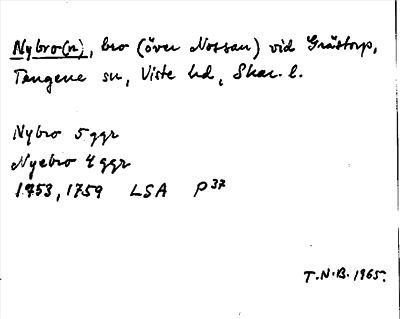 Nybro(n), bro (över Nossan) vid Grästorp,
Tengene sn, Viste hd, Skar. l.
Nybro 5 ggr
Nyebro 4 ggr
1753, 1759 LSA P 37
T.N.B. 1965.